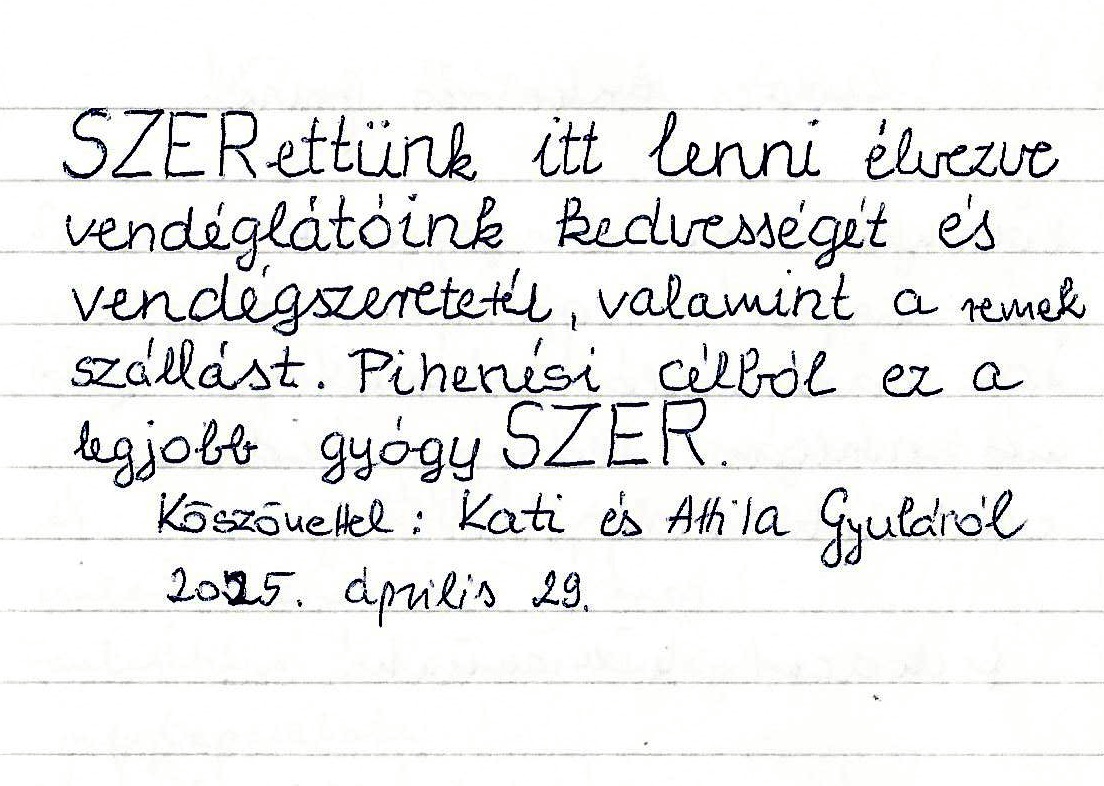 SZERettünk itt lenni élvezve
vendéglátóink kedvességét és
vendégszeretetét, valamint a remek
szállást. Pihenési célból ez a
legjobb gyógySZER.
Köszönettel: Kati és Attila Gyuláról
2025. április 29.